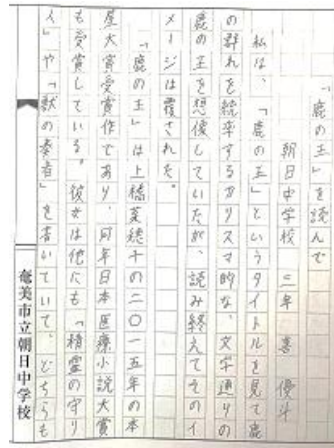 「鹿の王」を読んで
朝日中学校 三年 喜 優斗
私は、「鹿の王」というタイトルを見て鹿
の群れを統率するカリスマ的な、文字通りの
鹿の王を想像していたが、読み終えてそのイ
メージは覆された。
「鹿の王」は上橋菜穂子の二〇一五年の本
屋大賞受賞作であり、同年日本医療小説大賞
も受賞している。彼女は他にも「精霊の守り
人」や「獣の奏者」を書いていて、どちらも
奄美市立朝日中学校